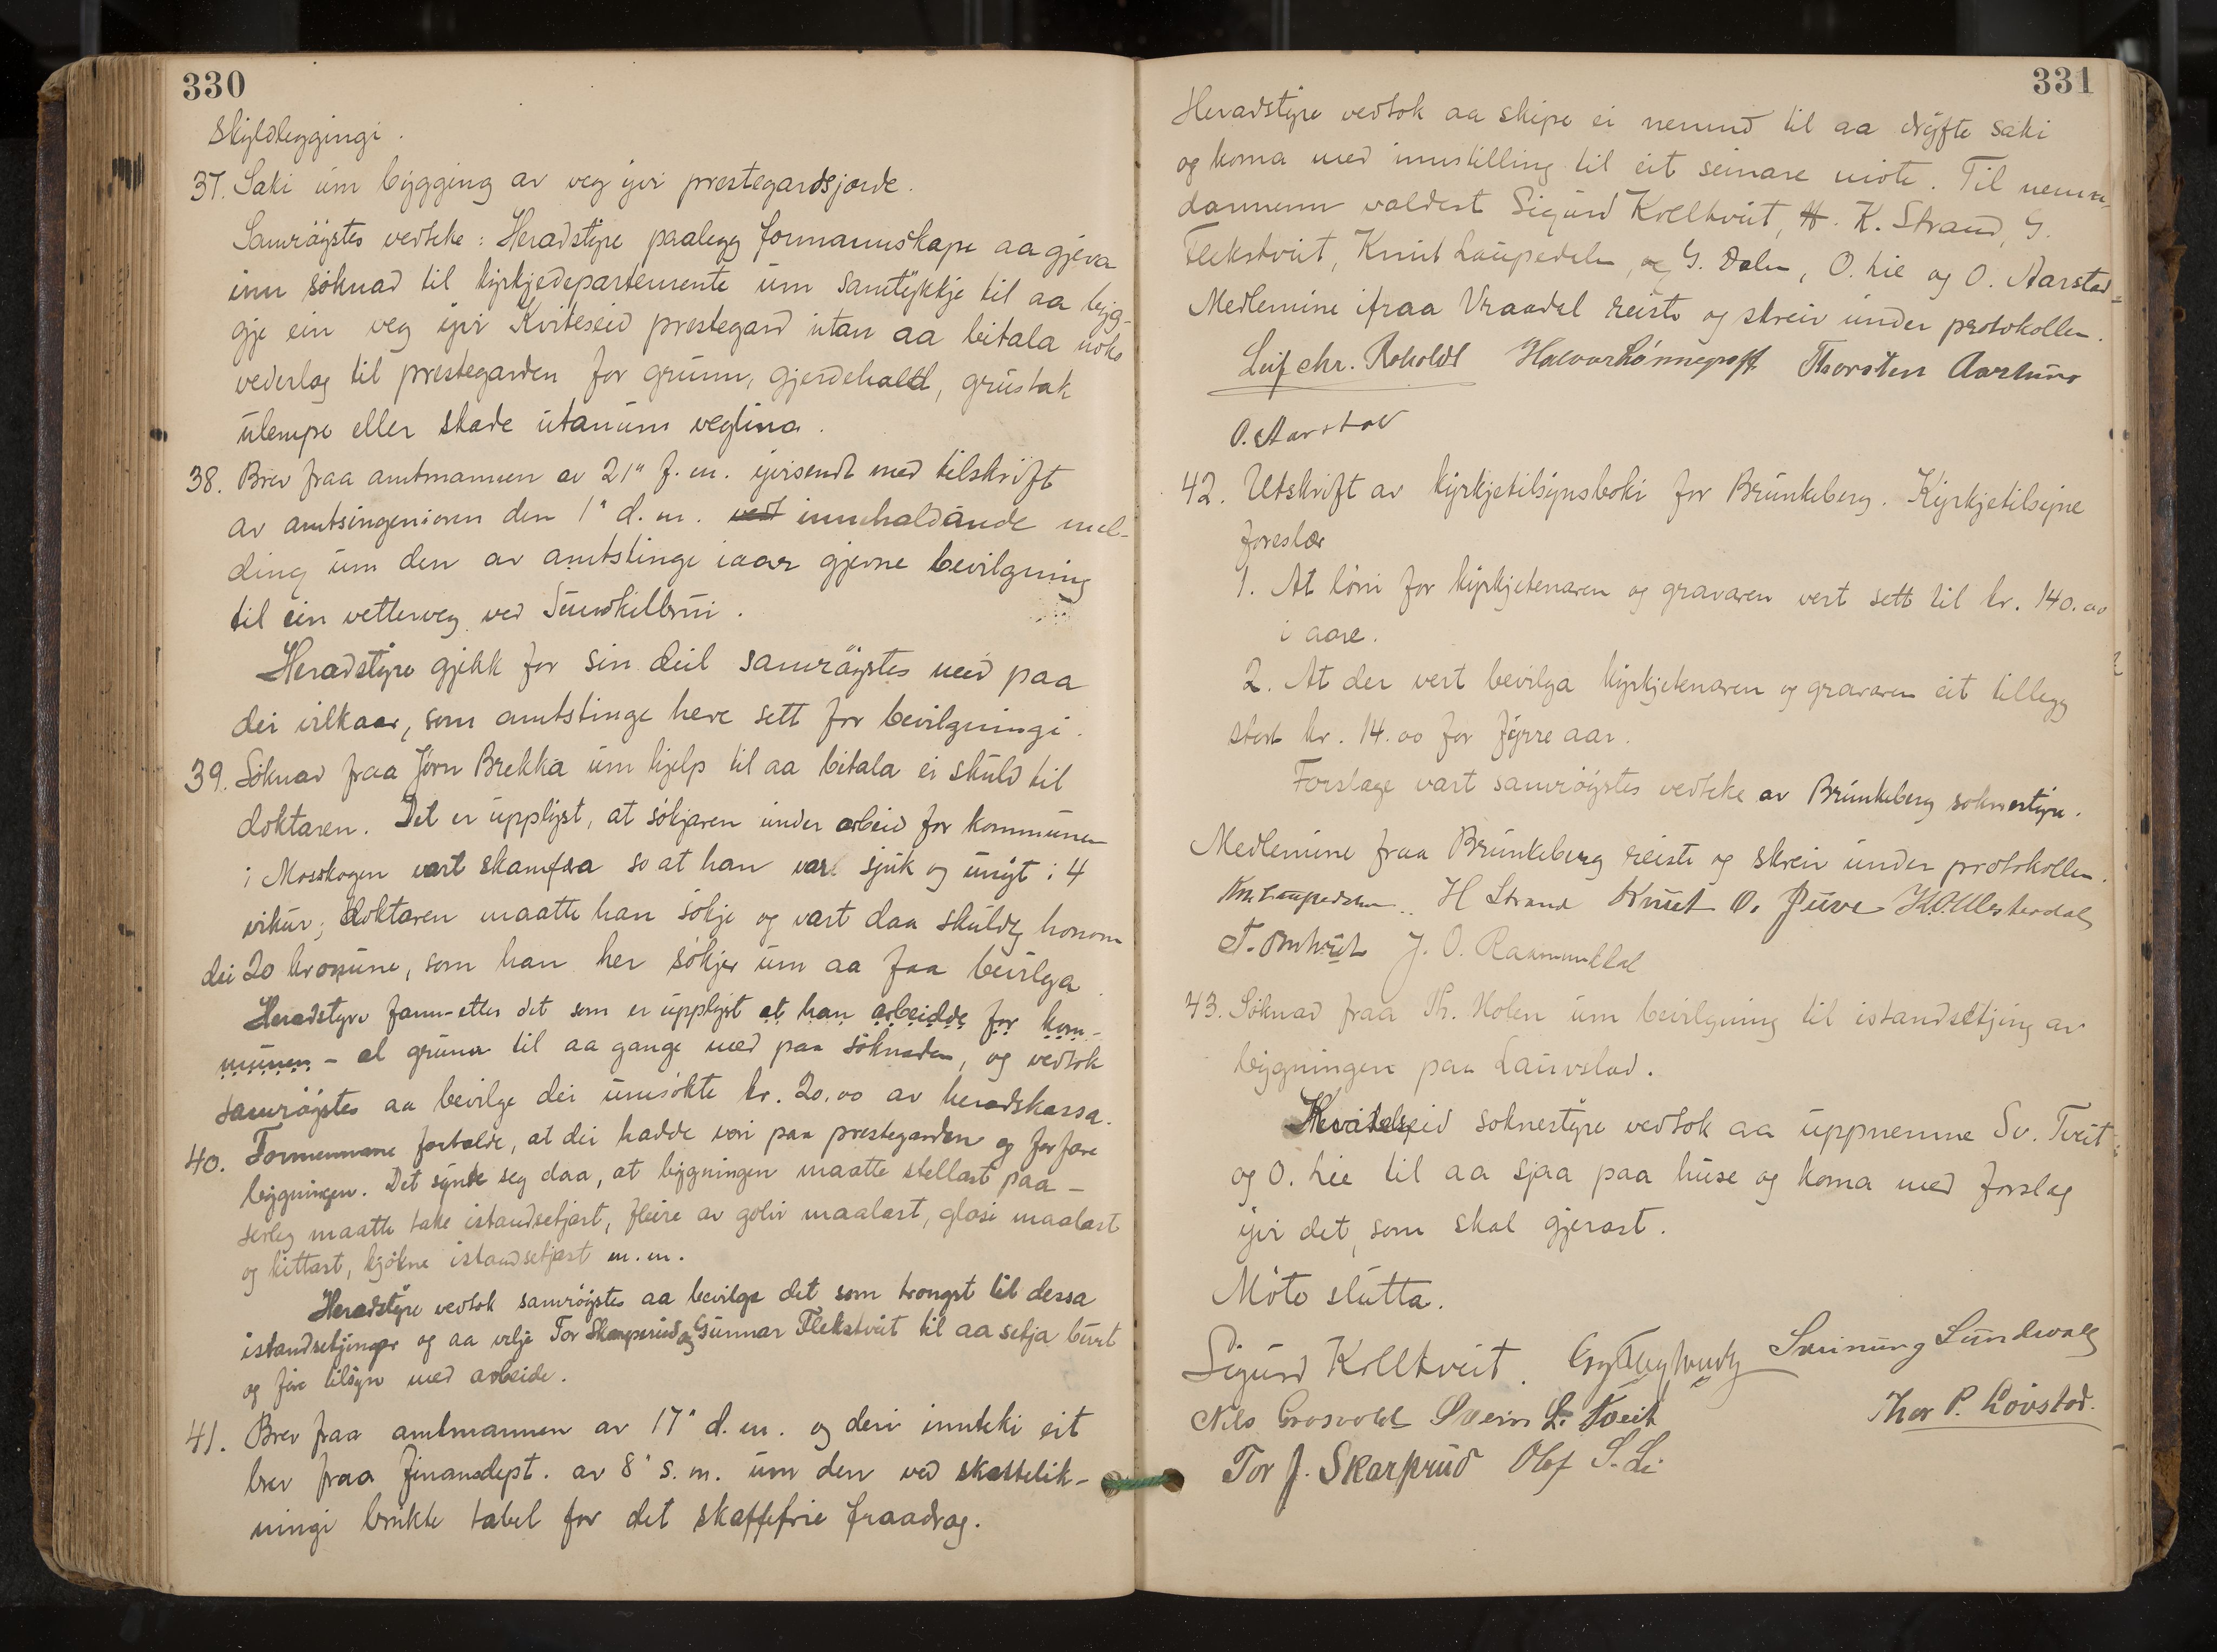 330
Skyldleggingi.
37. Saki um bygging av veg yvi prestegardsjorde.
Samrøystes vedteke: Heradstyre paalegg formannskape aa gjeva
inn søknad til kyrkjedepartemente um samtykkje til aa byg-
gje ein veg yvi Kviteseid prestegard utan aa bitala noko
vederlag til prestegarden for grunn, gjerdehald, grustak
ulempe eller skade utanum veglina.
38. Brev fraa amtmannen av 21" f. m. yvisendt med tilskrift
av amtsingeniøren den 1" d. m. innehaldande mel-
ding um den av amtstinge iaar gjevne bevilgning
til ein vetterveg ved Sundkilbrui.
Heradstyre gjekk for sin deil samrøystes med paa
dei vilkaar, som amtstinge heve sett for bevilgningi.
39. Søknad fraa Jørn Brekka um hjelp til aa bitala ei skuld til
doktaren. Det er upplyst, at søkjaren under arbeid for kommunen
i Moskogen vart skamfara so at han vart sjuk og unyt i 4
vikur; doktaren maatte han søkje og vart daa skuldig honom
dei 20 kronune, som han her søkjer um aa faa bevilga.
Heradstyre fann - etter det som er upplyst at han arbeidde for kom-
munen - at grunn til aa gange med paa søknaden, og vedtok
samrøystes aa bevilge dei umsøkte kr. 20.00 av heradskassa.
40. Formennane fortalde, at dei hadde vori paa prestegarden og forfare
bygningen. Det synte seg daa, at bygningen maatte stellast paa -
serleg maatte take istandsetjast, fleire av goliv maalast, glasi maalast
og kittast, kjøkne istandsetjast m. m.
Heradstyre vedtok samrøystes aa bevilge det som trongst til dessa
istandsetjingar og aa velje Tor Skarprud og Gunnar Flekstveit til aa setja burt
og føre tilsyn med arbeide.
41. Brev fraa amtmannen av 17" d. m. og deri innteki eit
brev fraa Finansdept. av 8" s. m. um den ved skattelik-
ningi brukte tabel for det skattefrie fraadrag.
331
Heradstyre vedtok aa skipe ei nemnd til aa drøfte saki
og koma med innstilling til eit seinare møte. Til nemn-
darmenn valdest Sigurd Kolltveit, H. K. Strand, G.
Flekstveit, Knut Laupedalen, og G. Dalen, O. Lie og O. Aarstad
Medlemine ifraa Vraadal reiste og skreiv under protokollen.
Leif Chr. Roholdt Halvor Lønnegraff Thorsten Aarhuno
O. Aarstad
42. Utskrift av kyrkjetilsynsboki for Brunkeberg. Kyrkjetilsyne
foreslær
1. At løni for kyrkjetenaren og gravaren vert sett til kr. 140.00
i aare.
2. At der vert bevilga kyrkjetenaren og gravaren eit tillegg
stort kr. 14.00 for fyrre aar.
Forslage vart samrøystes vedteke av Brunkeberg soknestyre.
Medlemine fraa Brunkeberg reiste og skreiv under protokollen.
Kn. Laupedalen H Strand Knut O. Juve
J. O. Raamunddal
43. Søknad fraa Th. Holen um bevilgning til istandsetjing av
bygningen paa Lauvslad.
Kviteseid soknestyre vedtok aa uppnemne Sv. Tveit
og O. Lie til aa sjaa paa huse og koma med forslag
yvi det, som skal gjerast.
Møte slutta.
Sigurd Kolltveit. Sveinung Sundvaag
Nils Grosvold Svein L. Tveit Thor P. Lövstad.
Tor J. Skarprud Olaf S. Li